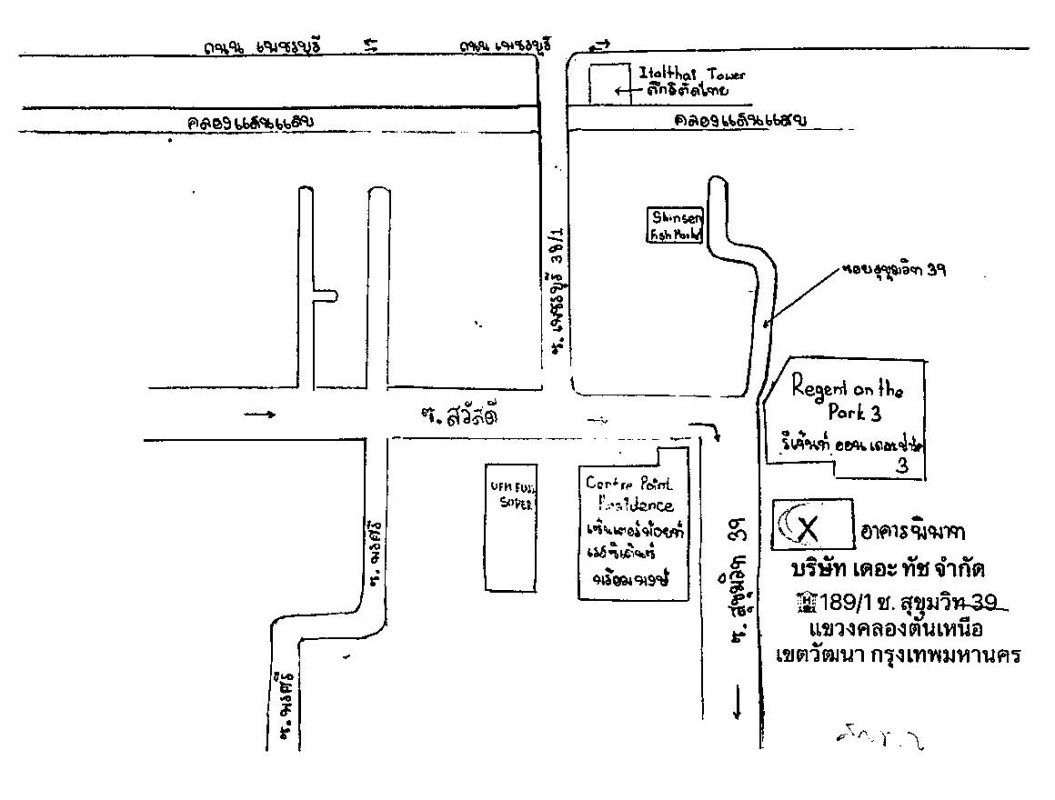 ถนน เพชรบุรี
ถนน เพชรบุรี
Italthai Tower
ตึกอิตัลไทย
คลองแสนแสบ
คลองแสนแสบ
Shinsen
Fish Market
ซอยสุขุมวิท 39
ซ. เพชรบุรี 38/1
Regent on the
Park 3
รีเจ้นท์ ออน เดอะปาร์ค
3
ซ. สวัสดี
UFM FUJI
SUPER
Centre Point
Residence
เซ็นเตอร์พ้อยท์
เรสซิเด้นซ์
พร้อมพงษ์
X
อาคารพิมาท
บริษัท เดอะ ทัช จำกัด
189/1 ซ. สุขุมวิท 39
แขวงคลองตันเหนือ
เขตวัฒนา กรุงเทพมหานคร
ซ. สุขุมวิท 39
ซ. พรศรี
ซ. พรศรี